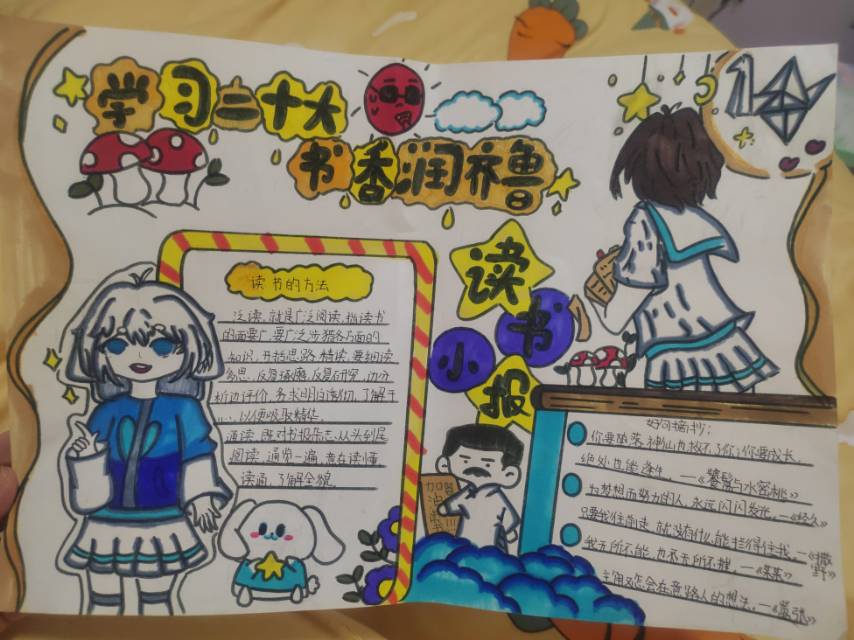 学习二十大
书香润齐鲁
读书小报
读书的方法
泛读,就是广泛阅读,指读书
的面要广,要广泛涉猎各方面的
知识,开括思路.精读,要细读
多思,反复琢磨,反复研究,边分
析边评价,务求明白透彻,了解于
心,以便吸取精华.
通读,既对书报杂志,从头到尾
阅读,通览一遍,意在读懂
读通,了解全貌
加油
好句摘抄:
你要堕落,神仙也救不了你;你要成长,
绝处也能逢生.—《饕餮与水蜜桃》
为梦想而努力的人,永远闪闪发光.—《
只要我们向走,就没有什么能拦得住我.—《撒野》
我无所不能,也不无所不
主角又怎会在意路人的想法.—《嚣张》